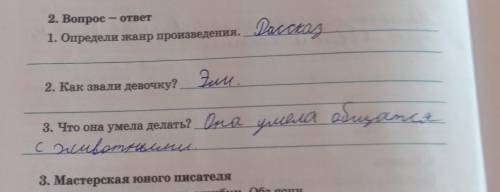 2. Вопрос – ответ
1. Определи жанр произведения. Рассказ
2. Как звали девочку? Эли.
3. Что она умела делать? Она умела общатся
с животными.
3. Мастерская юного писателя